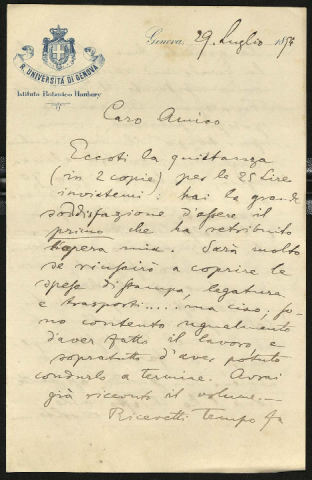 R. UNIVERSITÀ DI GENOVA
Istituto Botanico Hanbury
Genova, 29 Luglio 189
Caro Amico
Eccoti la quittanza
(in 2 copie) per le 25 Lire
inviatemi: hai la grande
soddisfazione d'essere il
primo che ha retribuito
l'opera mia. Sarà molto
se riuscirò a coprire le
spese di stampa, legatura,
e trasporti..... ma ciao; so-
no contento ugualmente
d'aver fatto il lavoro, e
sopratutto d'aver potuto
condurlo a termine. Avrai
già ricevuto il volume.—
Ricevetti tempo fa